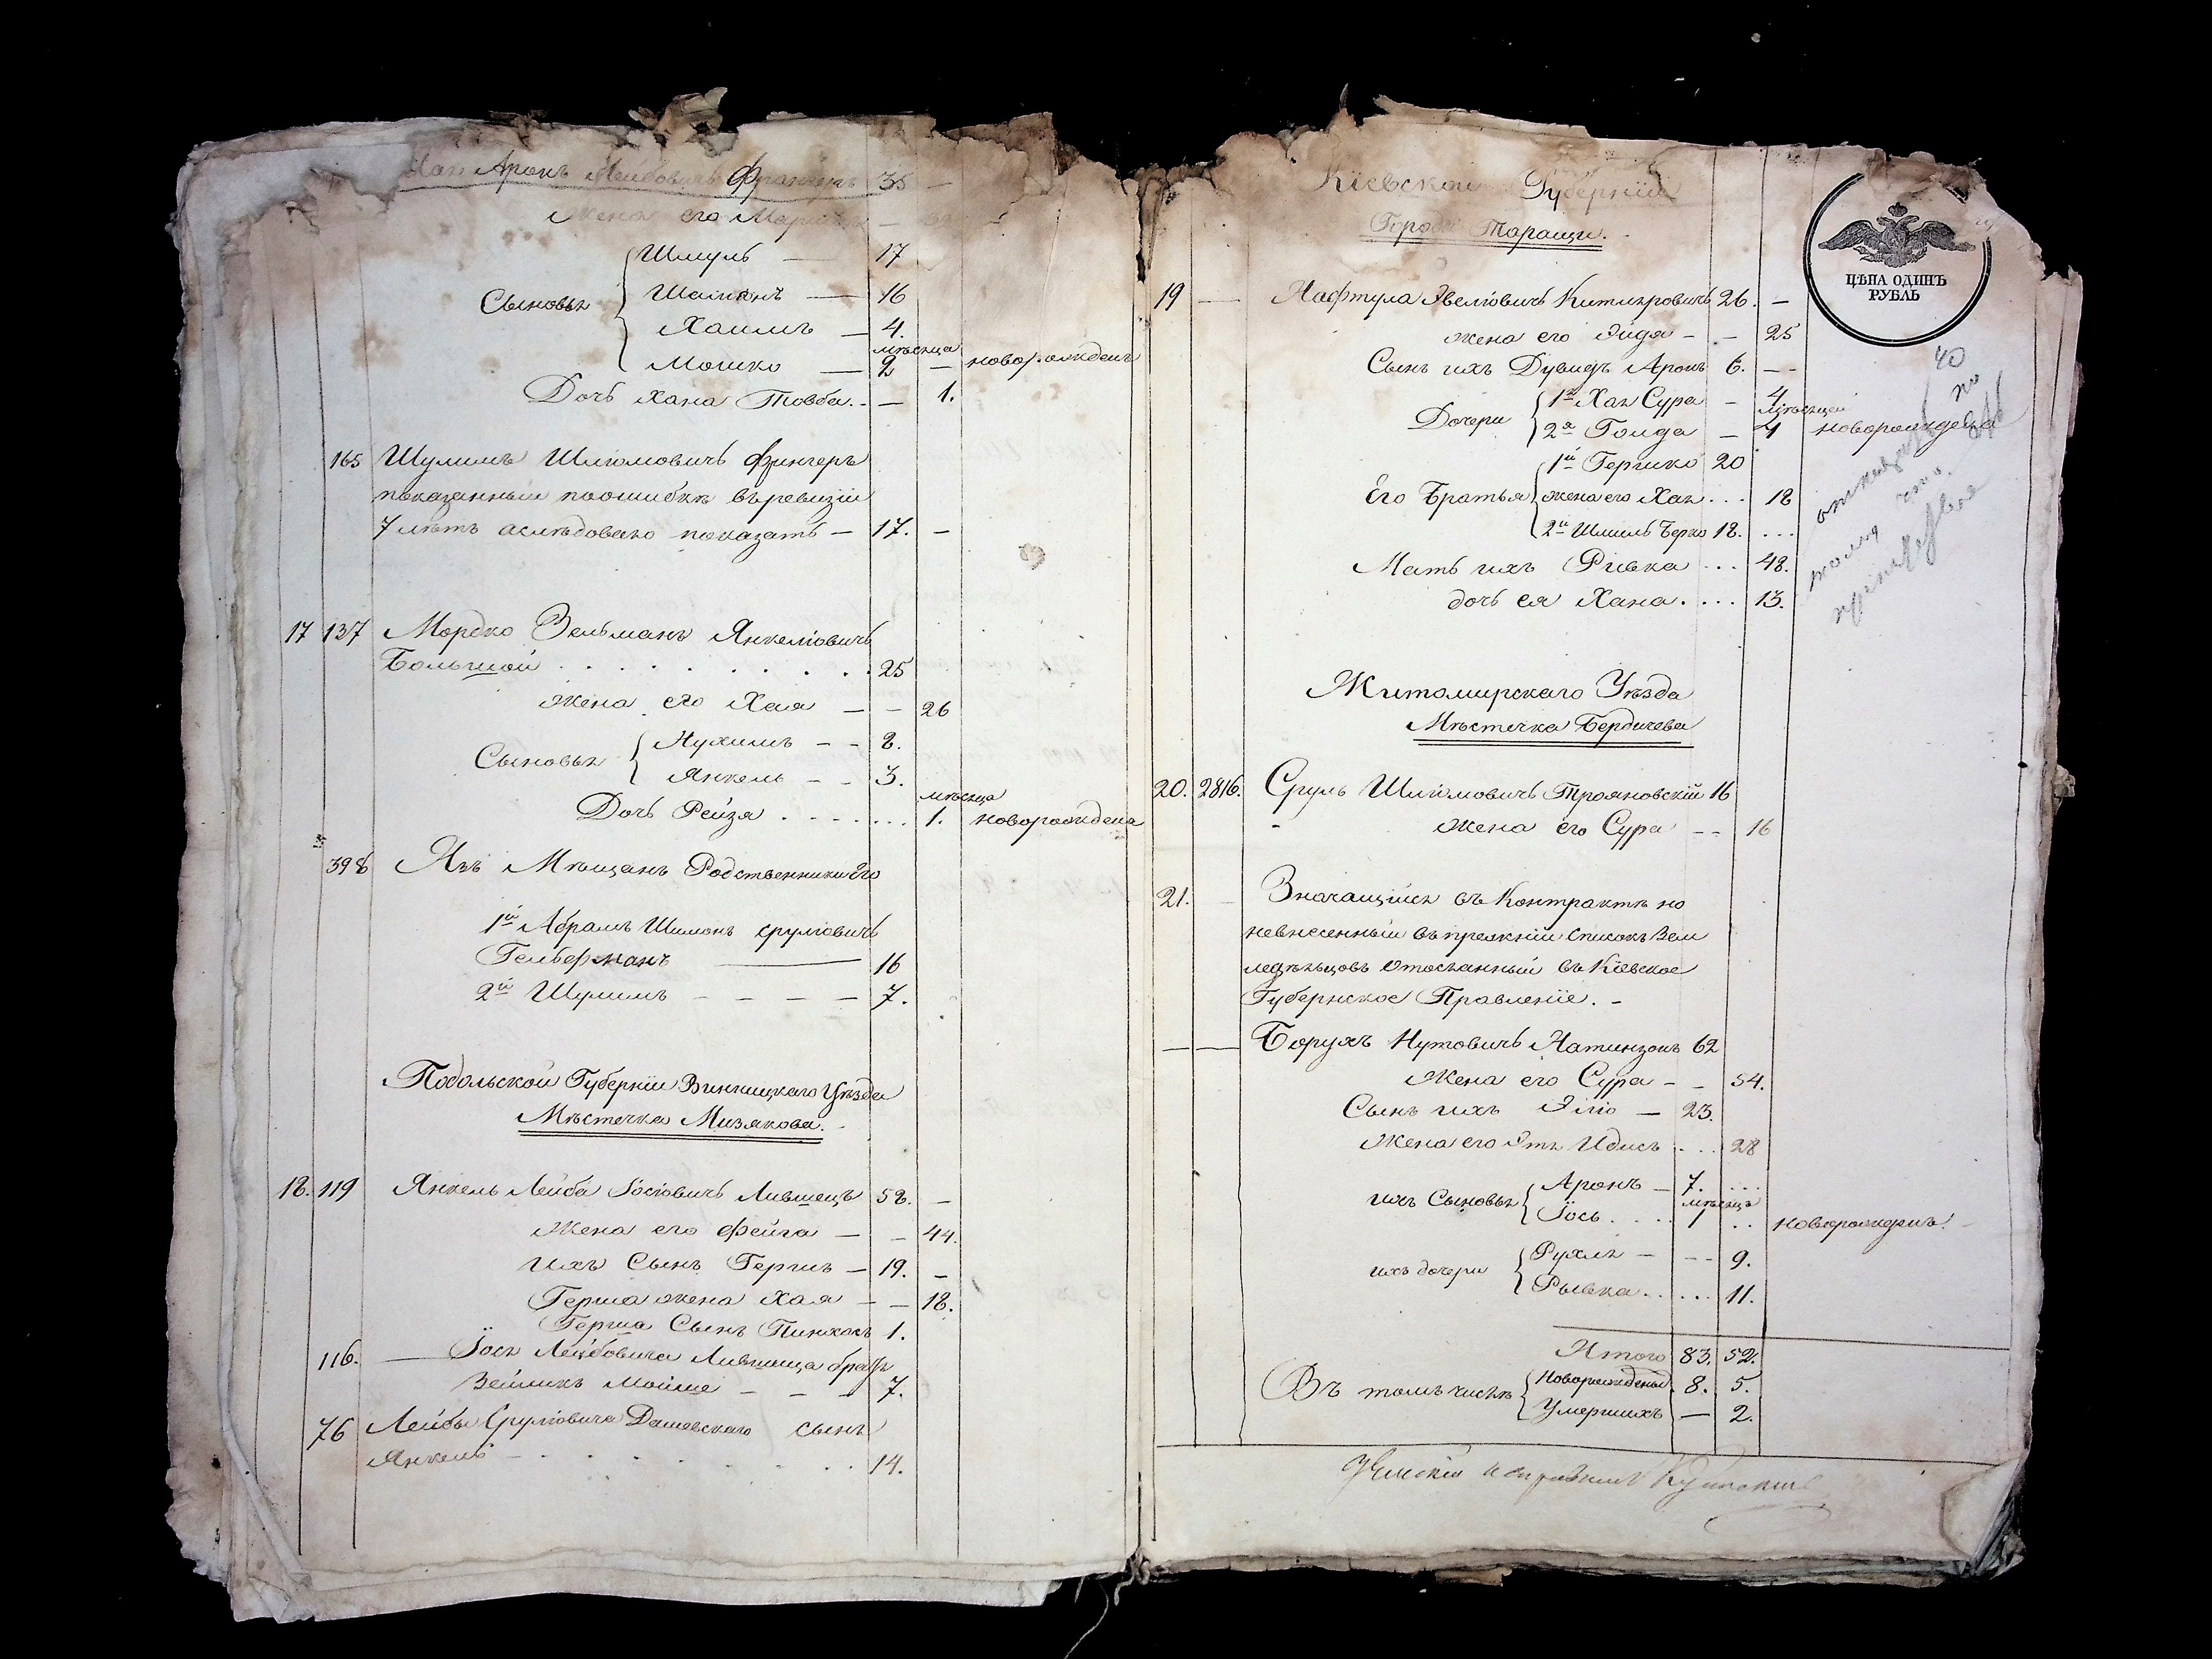 Аронъ Лейбовичъ 35 —
Жена его
Сыновья Шмуль — 17
Шаинонъ — 16
Хаимъ — 4.
Мошко — мѣсяца 2 — новорожденъ
Дочь Хана Товба. — — 1.
165 Шулимъ Шліомовичъ Фингеръ
показанный поошибкѣ въ ревизіи
7 лѣтъ а слѣдовало показать — 17. —
17 137 Мордко Зельманъ Янкеліовичъ
Большой . . . . . . . . . . 25
жена его Хая — — 26
Сыновья Нухимъ — — 8.
Янкель — — 3.
Дочь Рейзя . . . . . . . мѣсяца 1. новорождена
398 Изъ Мѣщанъ Родственники Его
1й Абрамъ Шимонъ Сруліовичъ
Гельберманъ — 16
2й Шулимъ — — — — 7.
Подольской Губерніи Винницкаго Уѣзда
Мѣстечка Мизякова.
18. 119 Янкель Лейба Іосіовичъ Лившецъ 52. —
Жена его Фейга — — 44.
Ихъ Сынъ Гершъ — 19. —
Герша жена Хая — — 18.
Герша Сынъ Пинхасъ 1.
116. — Іося Лейбовича Лившица братъ
Зейликъ Мойше — — — 7.
76 Лейбы Сруліовича Дашевскаго сынъ
Янкель — . . . . . . . . . 14.
Кіевской Губерніи
Города Таращи.
ЦѢНА ОДИНЪ
РУБЛЬ
19 — Нафтула Эвеліовичъ 26. —
жена его Эйдя — . — 25
Сынъ ихъ Дувидъ Аронъ 6. — —
40
Дочери 1я Хая Сура — 4
2я Голда — мѣсяцей 4 новорождена
Его Братья 1й Гершко 20
жена его Хая . . . 18
2й Шмиль Берко 18. . . .
Мать ихъ Ривка . . . 48.
дочь ея Хана . . . . 13.
Житомирскаго Уѣзда
Мѣстечка Бердичева
20. 2816. Сруль Шліомовичъ Трояновскій 16
- Жена его Сура — — 16
21. — Значащійся въ Контрактѣ но
невнесенный въ прежній списокъ Зем
ледѣльцовъ отосланный въ Кіевское
Губернское Правленіе. —
— — Борухъ Нутовичъ Натинзонъ 62
Жена его Сура — — 54.
Сынъ ихъ — 23.
Жена его Этя Идись . . . 28
ихъ Сыновья Аронъ — 7. . . .
Іось . . . . мѣсяцъ 1 . . новорожденъ. —
ихъ дочери Рухля — — — 9.
Рывка . . . . . 11.
Итого 83. 52.
Въ томъ числѣ Новорожденныхъ. 8. 5.
Умершихъ — 2.